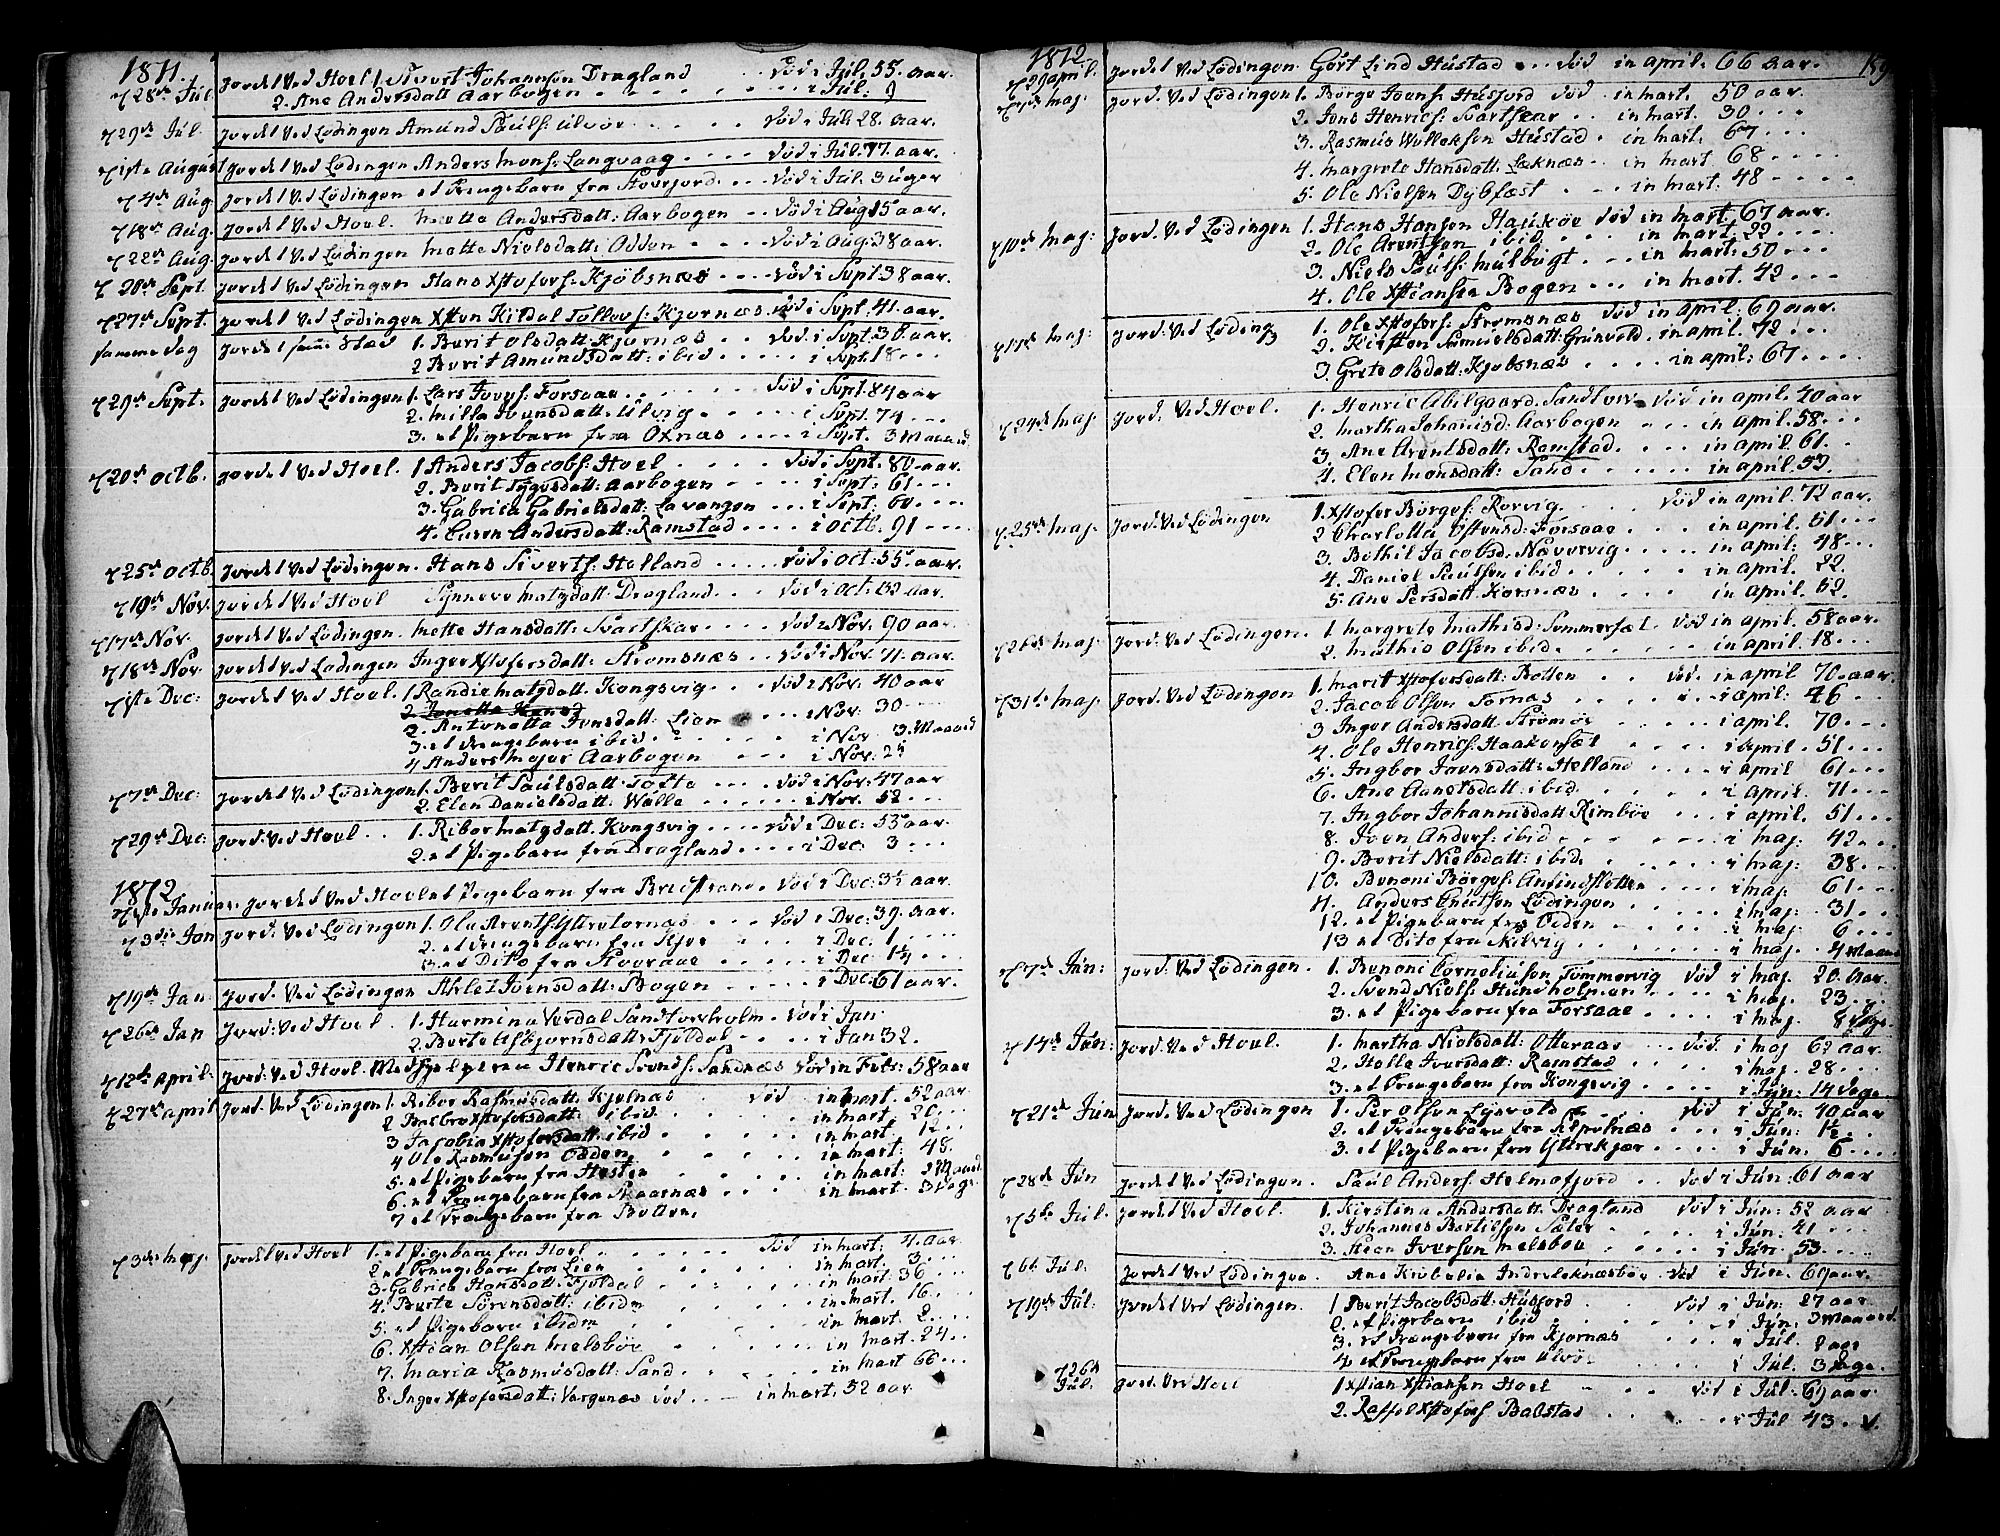 1811.
d 28de Jul. Jordet ved Hoel 1. Sivert Johannsön Dragland . . död i Jul. 55. aar.
2. Ane Andersdatt Aarbogen . . . i Jul: 9
d 29de Jul. Jordet ved Lödingen Amund Paulss: Ulvör . . . död i Jul. 28. aar.
d 1ste August Jordet ved Lödingen Anders Monss: Langvaag . . . död i Jul. 77. aar.
d 4de Aug. Jordet ved Lödingen et Drengebarn fra . . . död i Jul. 3 uger
d 18de Aug. Jordet ved Hoel. Metta Andersdatt: Aarbogen . . död i Aug 15 aar.
d 22de Aug. Jordet ved Lödingen Mette Nielsdatt: Odden . . . död i Aug. 38 aar.
d 20de Sept. Jordet ved Lödingen Hans Xstofers: Kjöbsnæs . . . död i Sept. 38 aar.
d 27de Sept. Jordet ved Lödingen Xsten Kildal Tollevs: Kjornæs död i Sept. 41. aar.
Samme dag Jordet samme Stæd 1. Berit Olsdatt: Kjornæs . . död i Sept. 38. aar.
2 Berit Amundsdatt: ibid . . . i Sept. 18 . . .
d 29de Sept. Jordet ved Lödingen 1. Lars Joens: Forsaae . . . död i Sept. 84 aar
2. Milla Joensdatt: Ulvig . . . i Sept. 74 . . .
3. et Pigebarn fra Oxnæs . . . i Sept. 3 Maaned
d 20de Octb. Jordet ved Hoel. 1 Anders Jacobs: Hoel . . . död i Sept. 80. aar.
2. Berit Tygesdatt: Aarbogen . . i Sept: 61 . . .
3. Gabrila Gabrielsdatt: Lavangen . . . i Sept: 60 . . .
4. Guren Andersdatt: Ramstad . . . i Octb. 91 . . .
d 25de Octb Jordet ved Lödingen. Hans Sivertss: Halland . . . död i Oct. 55. aar.
d 10de Nov. Jordet ved Hoel Synneve Matgdatt: Dragland . . . död i Oct. 62 aar.
d 17de Nov. Jordet ved Lödingen. Mette Hansdatt: Svartskar . . död i Nov. 90 aar.
d 18de Nov Jordet ved Lödingen Inger Xstofersdatt: Stromsnæs . . död i Nov. 71. aar.
d 1ste Dec: Jordet ved Hoel. 1 Randie Matgdatt. Kongsvig . . . död i Nov. 40 aar
2. Antonetta Joensdatt: Lien . . i Nov. 30 . . .
3. et Drengebarn ibid . . . i Nov 3. Maaned
4 Anders Majer Aarbogen . . . i Nov. 2½
d 7de Dec: Jordet ved Lödingen 1. Berit Paulsdatt: Tofte . . . död i Nov. 47 aar
2. Elen Danielsdatt: Walle . . . i Nov. 52 . . .
d 29de Dec: Jord: ved Hoel . . 1. Ribor Matgdatt. Kongsvig . . . död i Dec: 53 aar
2. et Pigebarn fra Dragland . . . i Dec: 3 . . .
1812
d 1ste Januar. Jordet ved Hoel et Pigebarn fra . . . död i Dec: 3½ aar.
d 3die Jan Jord: ved Lödingen 1. Ola Arents: Ytretornæs . . . död i Dec. 39. aar.
2. et Drengebarn fra Kjöe . . . i Dec: 1 . . .
3. et Dito fra . . . i Dec 1¼ . .
d 19de Jan. Jord. ved Lödingen Ahlet Ivensdatt: Bogen . . . i Dec: 61 aar.
d 26de Jan Jord: ved Hoel . 1. Harmina Verdal Sandtorvholm . död i Jan
2. Berte Asbjornsdatt: Fjeldal . . . i Jan 32.
d 12te April: Jord: ved Hoel. Medhjelperen Henric Svends: Sandnæs död in Febr: 58 aar
d 27de April Jord. ved Lödingen 1. Ribor Rasmusdatt. Kjelnæs . . död in Mart. 52 aar
2 Xstofersdatt: ibid . . . in Mart: 20 . . .
3 Jacobia Xstofersdatt: ibid . . . in Mart. 12 . . .
4 Ole Rasmusen Odden . . . in Mart: 48.
5. et Pigebarn fra Hesten . . . in Mart: 2½ Maaned
6. et Drengebarn fra Skaarnæs . . . in Mart. 3 Dage
7 et Drengebarn fra Botten.
d 3die Maj. Jordet ved Hoel 1. et Pigebarn fra Hoel . . . död in Mart: 4. aar.
2 et Drengebarn fra Lien . . . in Mart. 3 . . .
3. Gabrila Hansdatt: Fjeldal . . . in Mart. 36 . . .
4. Berte Sörensdatt: ibidm . . . in Mart. 16 . . .
5. et Pigebarn ibidm . . . in Mart 2 . . .
6. Xstian Olsen Melsböe . . . in Mart. 24 . . .
7. Maria Rasmusdatt: Sand . . . in Mart 66 . . .
8. Inger Xstofersdatt: Vargenæs död . . . in Mart. 52 aar.
1812
d 29 April. Jordet ved Lödingen. Gört Lind Hustad . . . död in April. 66 aar. 159
d 7de Maj. Jordet ved Lödingen 1. Börge Joens: Husjord död . in Mart. 50 aar.
2. Jens Henrics: Svartskar . . in Mart. 30 . . .
3. Rasmus Wolleksen Hustad . in Mart: 67 . . .
4. Margrete Hansdatt: Læknæs . . in Mart 68 . . . .
5. Ole Nielsen Dybfæst . . . in Mart: 48 . . . .
d 10de Maj: Jord. ved Lödingen 1. Hans Hansen Hauköe död in Mart. 67 aar.
2. Ole Arentsen ibid . . . in Mart: 22 . . .
3. Niels Pauls: Mulbugt . . . in Mart: 50 . . .
4. Ole Xstiansen Bogen . . . in Mart. 42 . . .
d 17de Maj: Jord: ved Löding 1. Ole Xstofers: Stromsnæs död in April. 69 aar.
2. Kirsten Samuelsdatt: Grunvold. in April. 72 . . .
3. Grete Olsdatt: Kjobsnæs . . . in April: 67 . . . .
d 24de Maj: Jord: ved Hoel. 1. Henric Abilgaard. Sandtorv . död in April. 40 aar
2. Martha Johannsd: Aarbogen . . in April. 58 . . .
3. Ane Arentsdatt: Ramstad. . . in April. 61 .
4. Elen Monsdatt: Sand . . . in April. 53.
d 25de Maj. Jord: ved Lödingen 1. Xstofer Börges: Rorvig. död in April. 72 aar.
2 Charlotta Östensd: Forsaae . . in April. 61 . . .
3. Bothil Jacobsd: Næverevig . . . . in April: 48 . . .
4. Daniel Paulsen ibid . . . in April. 22.
5. Ane Persdatt: Korsnæs . . . in April. 62.
d 26de Maj: Jord: ved Lödingen. 1. Margrete Mathisd: Sommersæt . död in April. 58 aar.
2. Mathis Olsen ibid . . . in April. 18 . . .
d 31te Maj. Jord: ved Lödingen 1. Marit Xstofersdatt: Botten . . död. in April 70. aar.
2. Jacob Olsen Tornæs . . . i April. 46 . . .
3 Inger Andersdatt: Strömöe . . . i April. 70 . . .
4. Ole Henrics: Haakensæt . . . i April. 51 . . .
5. Ingbor Joensdatt: Helland . . . i April 61 . . .
6. Ane Aanetsdatt: ibid . . . i April. 71 . . .
7. Ingbor Johannisdatt: Rimböe . . . i April. 51 . . .
8. Joen Anders: ibid . . . i Maj. 42 . . .
9. Berit Nielsdatt: ibid . . . i Maj: 38 . . .
10. Benoni Börges: . . . i Maj: 61 . . .
11. Anders Knutsen Lödingen . . . i Maj: 31 . . .
12. et Pigebarn fra Odden . . . i Maj: 6 . . .
13 et Dito fra . . . i Maj. 4 Maaned
d 7de Jun: Jord: ved Lödingen . 1. Benoni Corneliusen Tömmervig död i Maj. 20. aar.
2. Svend Niels: Hundholmen . . . i Maj: 23 . . .
3. et Pigebarn fra Forsaae . . . i Maj. 8 Dage.
d 14de Jun: Jord: ved Hoel. 1. Martha Nielsdatt: Otteraae . . död. i Maj 62 aar.
2. Helle Iversdatt: Ramstad . . . i Maj. 28 . . .
3. et Drengebarn fra Kongsvig . . . i Jun: 14 Dage
d 21de Jun Jord: ved Lödingen 1. Per Olsen . . . död i Jun: 40 aar
2. et Drengebarn fra . . i Jun: 1½ . .
3. et Pigebarn fra Ytterkjær . . . i Jun. 6 . . .
d 28de Jun Jordet ved Lödingen. Paul Anders: Helmofjord . . död i Jun: 61 aar
d 5te Jul. Jordet ved Hoel. 1. Kirstina Andersdatt: Dragland död i Jun: 52 aar
2. Johannes Bertilsen Sæter . . . i Jun: 41 . . .
3. Iversen Melsböe . . . i Jun: 53 . . .
d 6te Jul. Jordet ved Lödingen Ane död i Jun. 69 aar.
d 19de Jul: Jordet ved Lödingen. 1 Berit Jacobsdatt: Husjord . . död i Jun: 27 aar
2. et Pigebarn ibid . . . i Jun: 3 Maaned.
3. et Drengebarn fra Kjornæs . . i Jul. 2 aar
4 et Drengebarn fra Ulvör . . . i Jul. 3 Dage.
d 26de Jul. Jord. ved Hoel 1 Xstian Xstiansen Hoel . . död i Jul: 69 aar.
2. Xstofers Balstad . . . i Jul 43. V.